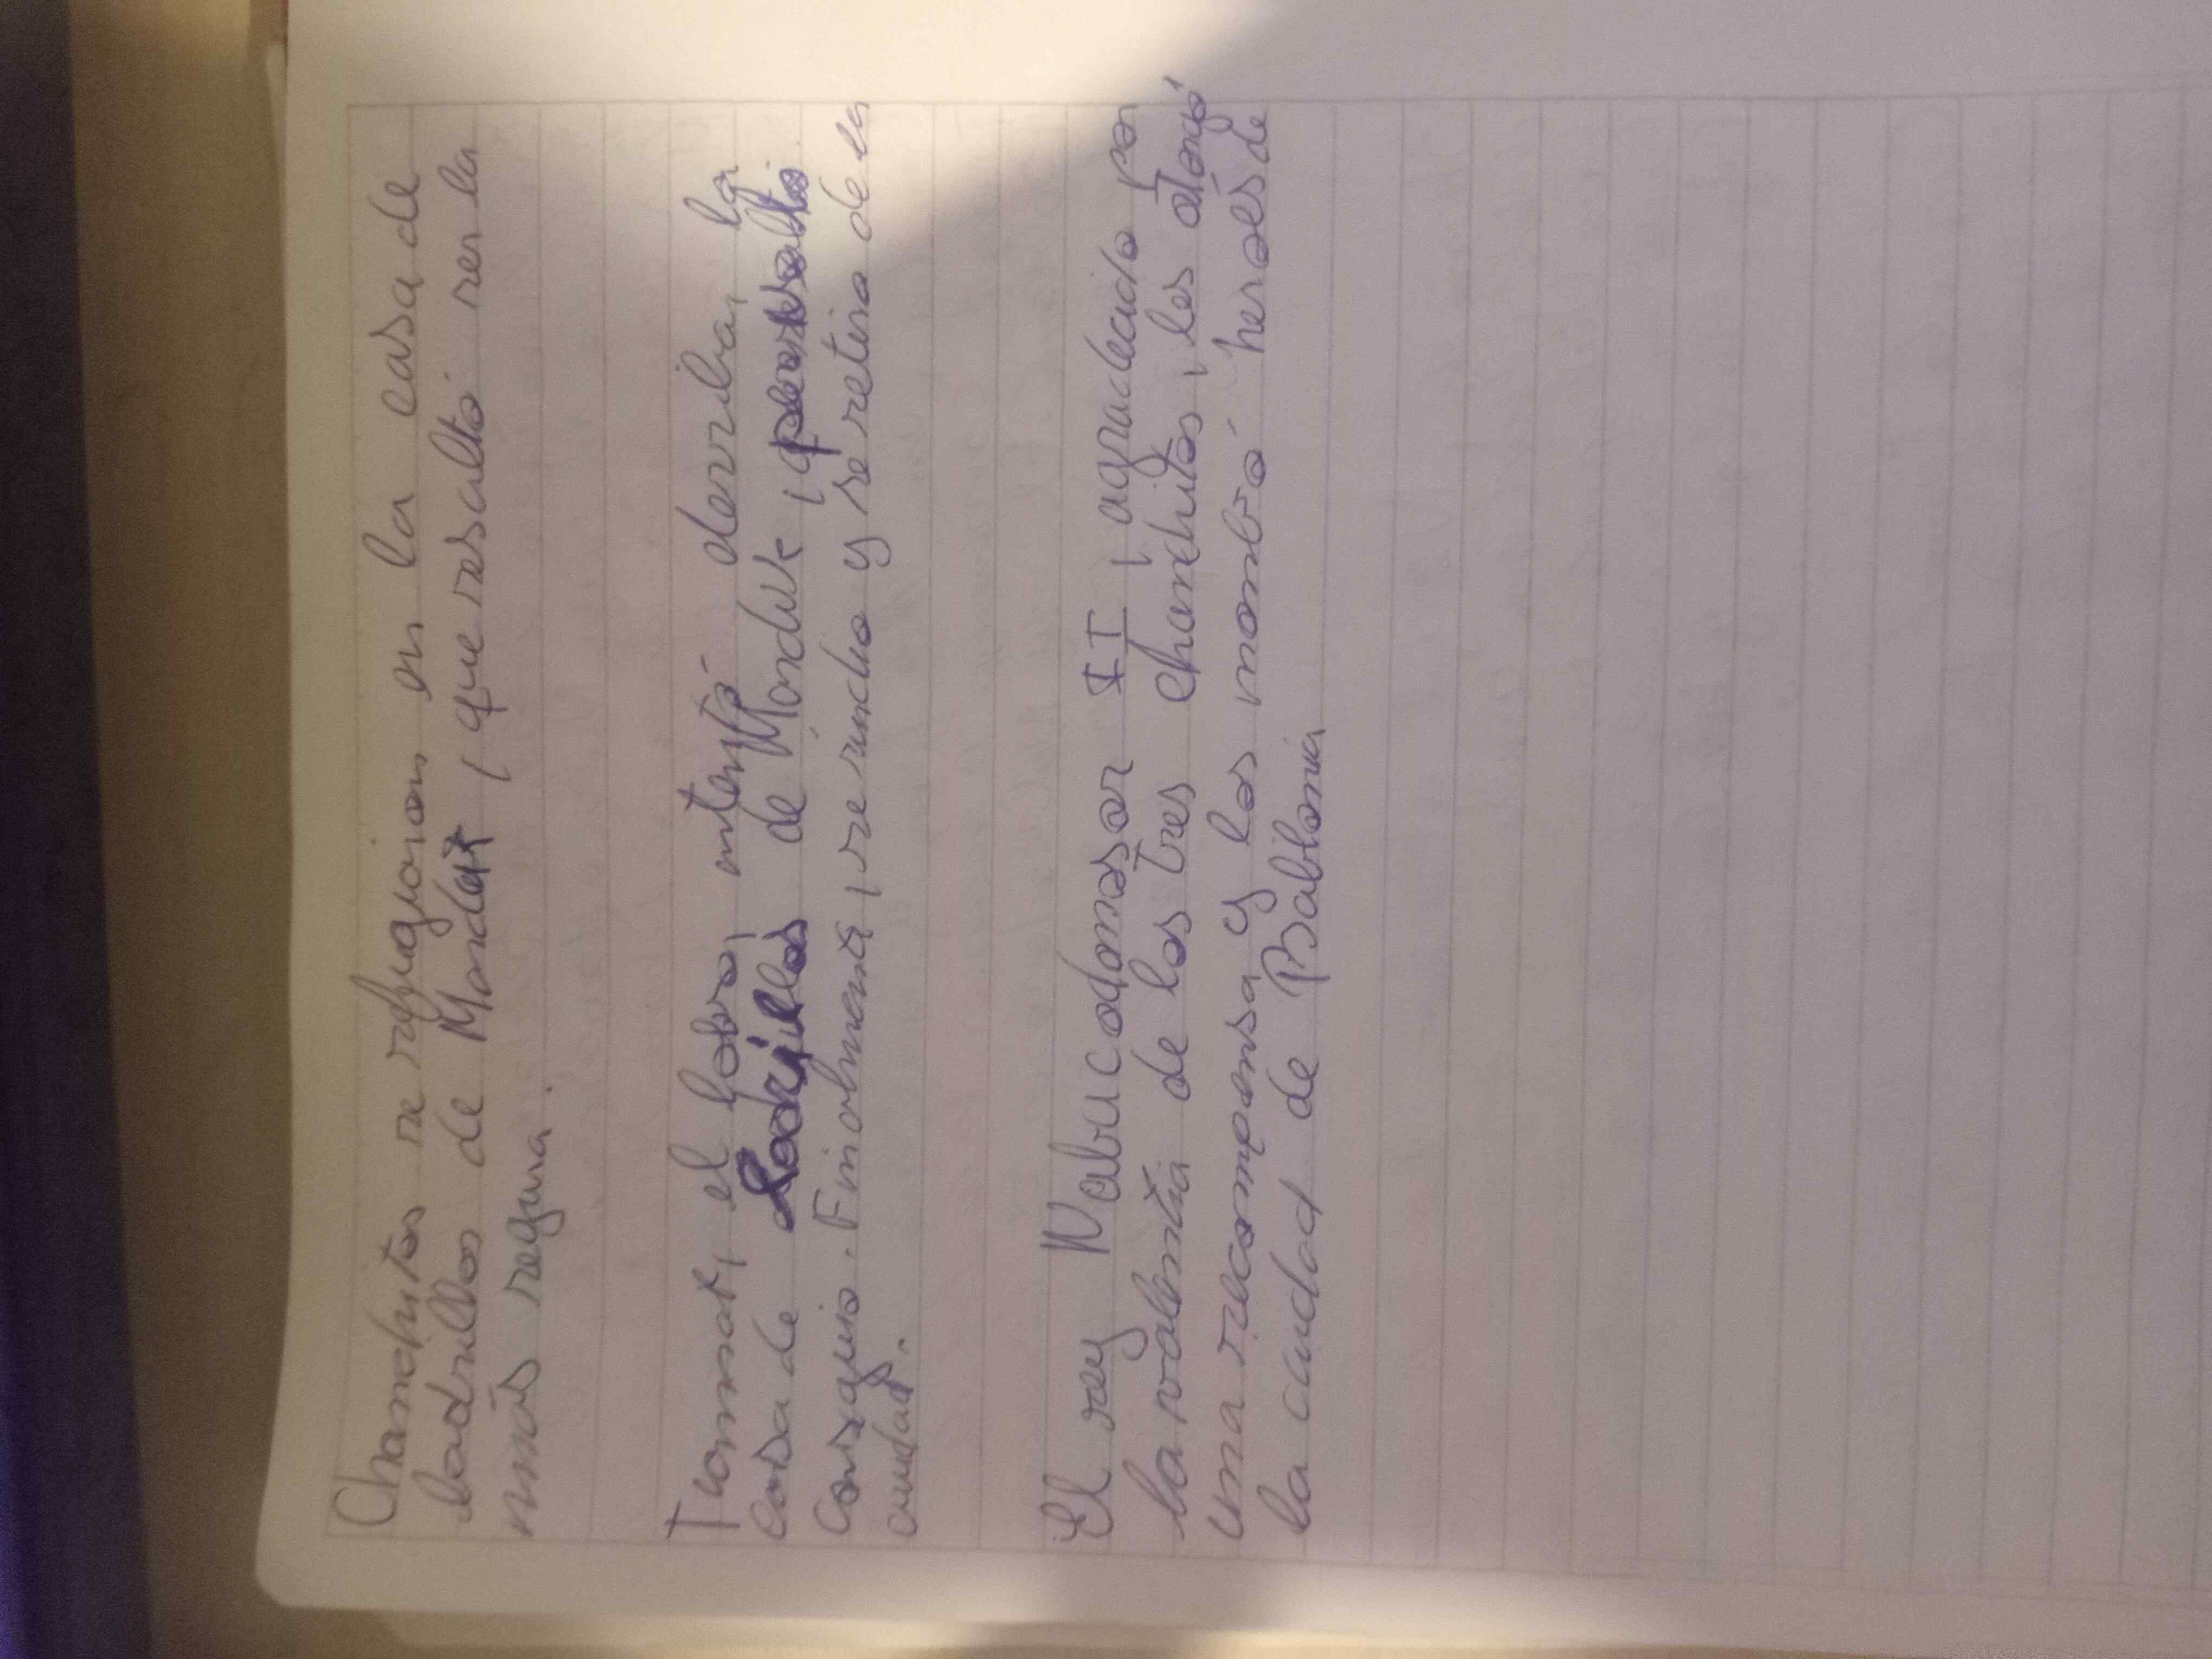 Chanchitos se refugiaron en la casa de
ladrillos de Marduk, que resultó ser la
más segura.
Tiamat, el lobo, intentó derribar la
casa de ladrillos de Marduk, pero no
consiguio. Finalmente, se rindio y se retira de la
ciudad.
El rey Nabucodonosor II, agradecido por
la valentía de los tres chanchitos, les otorgó
una recompensa y los nombró heroés de
la ciudad de Babilonia